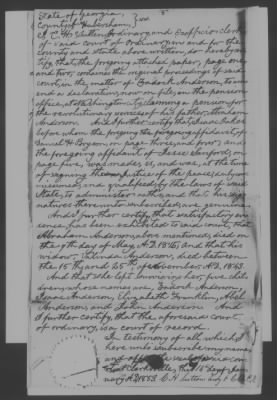 State of Georgia,
County of Habersham,
I, C. H. Sutton, Ordinary and Exofficio clerk
of said court of Ordinary, in and for the
county and State above written, do hereby cer-
tify, that the foregoing attached paper, page one
and two, contains the original proceedings of said
court, in the matter of Zadock Anderson, to am-
end a declaration, now on file, in the pension
office, at Washington City, claiming a pension for
the revolutionary services of his father, Abraham
Anderson. And I further certify, that
before whom the foregoing affidavit of
H. Bryson, on page three, and four, and
the foregoing affidavit of
page five, was made, is, and was, at the time
of signing the same Justice of the peace, duly com-
missioned, and qualified, by the laws of said
State, to administer oaths, and that the sig-
natures thereunto subscribed, are genuine.
And I further certify, that satisfactory evi-
dence, has been exhibited to said court, that
Abraham Anderson, above mentioned, died on
the 9th day of May, A.D. 1845, and that his
widow, Anderson, died between
the 15th, and 25th, of November A.D. 1851
And that she left surviving her, five chil-
dren, whose names are, Zadock Anderson,
Isaac Anderson, Elizabeth Franklin, Abel
Anderson, and John Anderson. And
I further certify, that the aforesaid court
of ordinary, is a court of record.
In testimony of all which I
here unto subscribe my name
and affix the seal of said court
at Clarksville, this 16th day of Jan-
uary A.D. 1853 C. H. Sutton